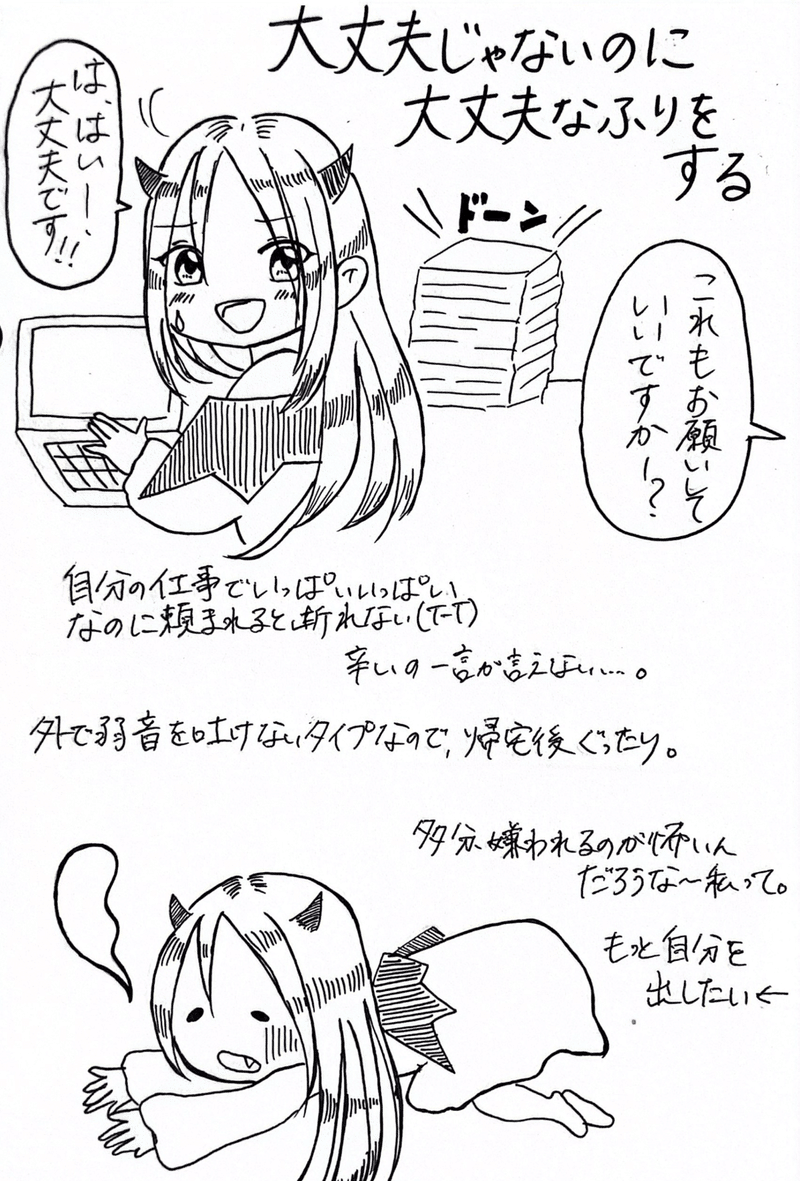 大丈夫じゃないのに
大丈夫なふりを
する
は、はいー、
大丈夫です!!
ドーン
これもお願いして
いいですかー?
自分の仕事でいっぱいいっぱい
なのに頼まれると断れない(T-T)
辛いの一言が言えない…。
外で弱音を吐けないタイプなので、帰宅後ぐったり。
多分、嫌われるのが怖いん
だろうな〜私って。
もっと自分を
出したい←